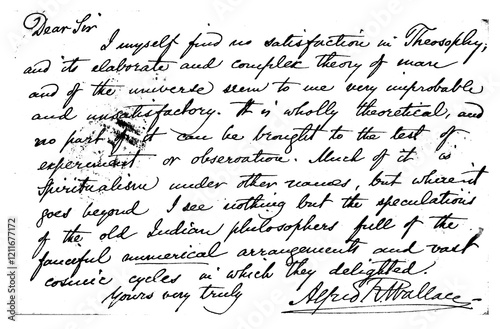 Dear Sir
I myself find no satisfaction in Theosophy,
and its elaborate and complex theory of man
and of the universe seem to me very improbable
and unsatisfactory. It is wholly theoretical, and
no part of it can be brought to the test of
experiment or observation. Much of it is
Spiritualism under other names, but where it
goes beyond I see nothing but the speculations
of the old Indian philosophers full of the
fanciful numerical arrangements and vast
cosmic cycles in which they delighted.
Yours very truly
Alfred R. Wallace
Adobe Stock | #1211677172